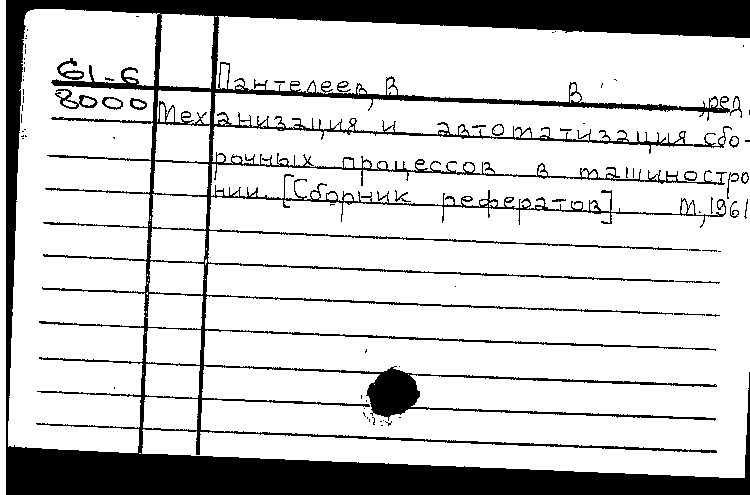 61-6 Пантелеев, В В ,ред.
8000 Механизация и автоматизация сбо-
рочных процессов в машиностро
нии. [Сборник рефератов]. М.,1961